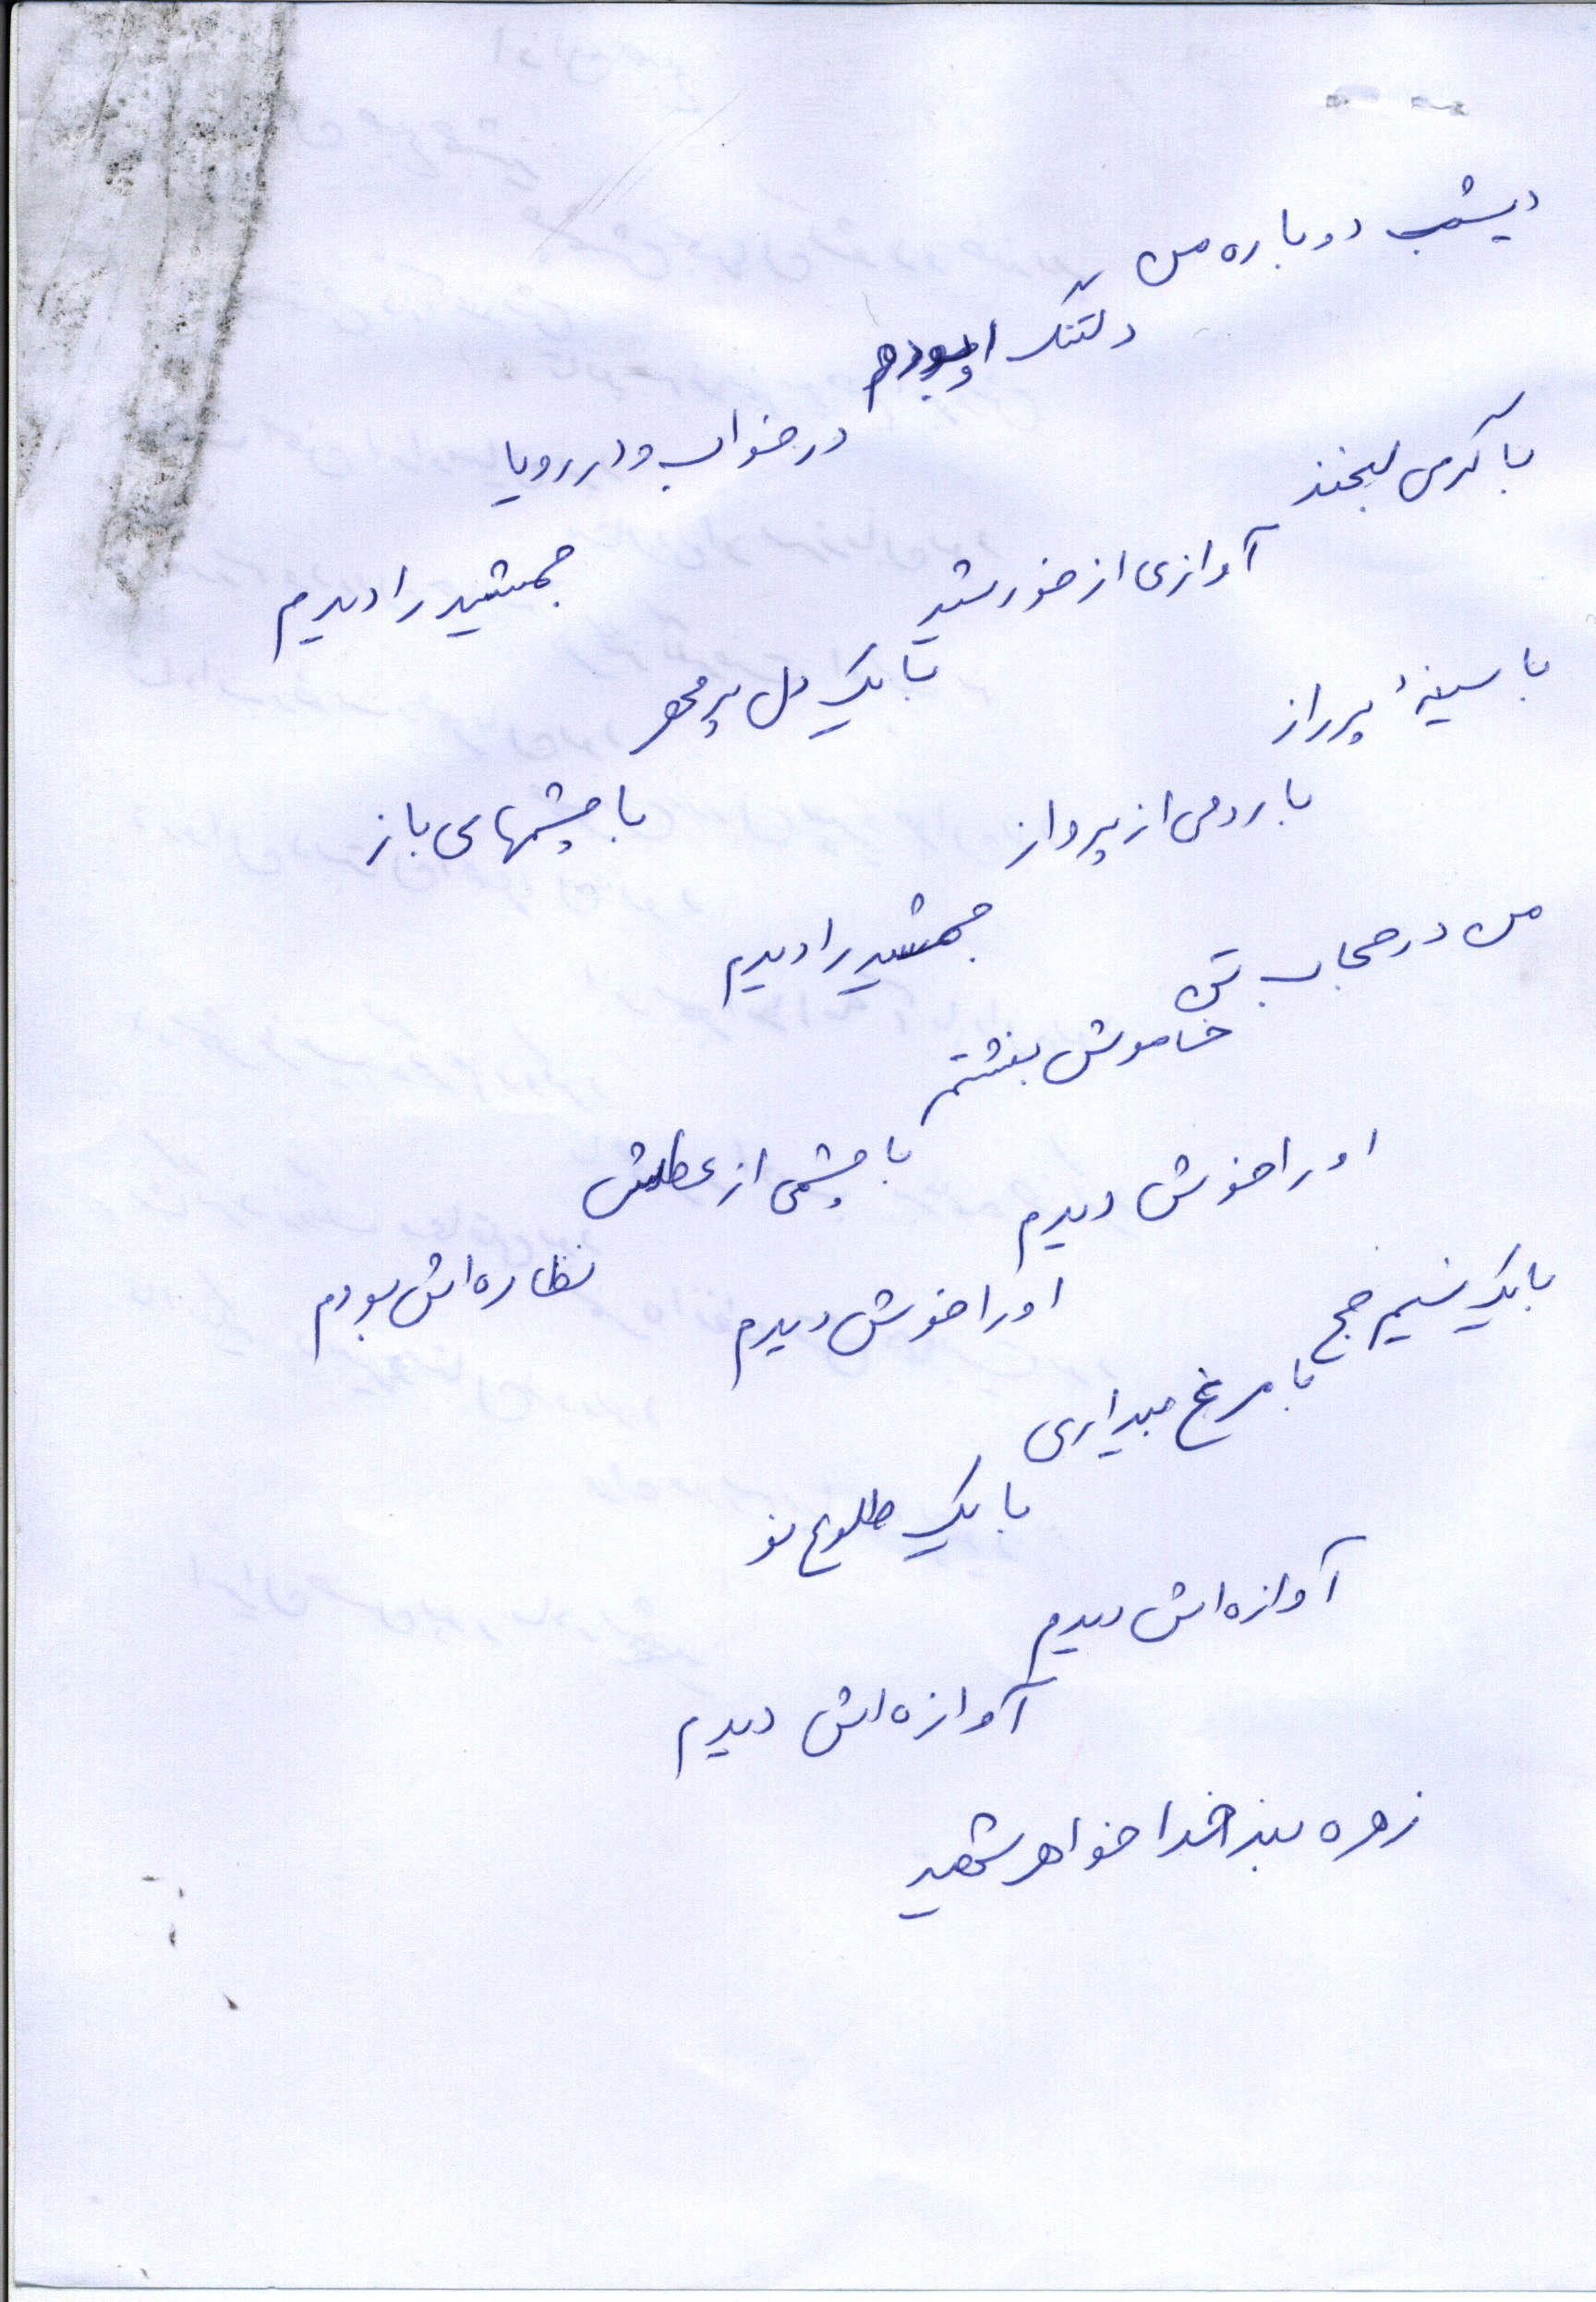 دیشب دوباره من
دلتنگ او بودم
در خواب و در رویا
جمشید را دیدم
با گرمی لبخند
آوازی از خورشید
با یک دل پر مهر
با سینهٔ پر راز
با روحی از پرواز
با چشمهای باز
جمشید را دیدم
من در حجاب تن
خاموش بنشستم
با چشمی از عطش
نظاره اش بودم
او را خوش دیدم
او را خوش دیدم
با یک نسیم صبح
با مرغ بیداری
با یک طلوع نو
آوازه اش دیدم
آوازه اش دیدم
زهره خواهر شهید